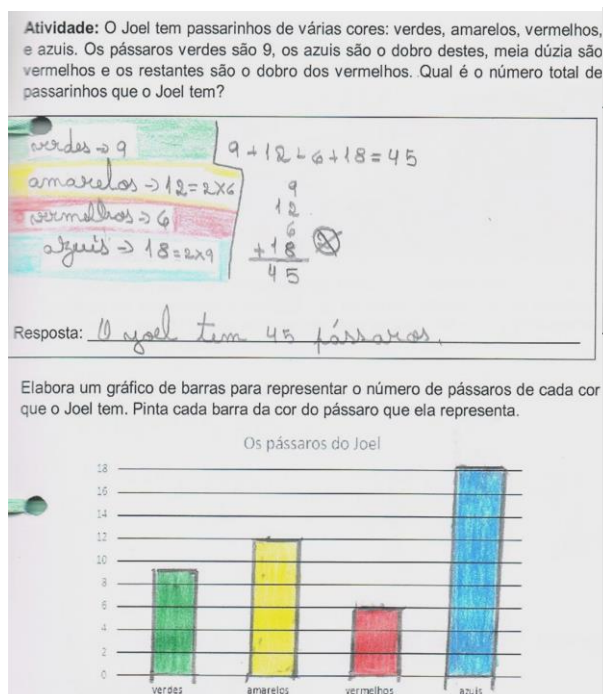 Atividade: O Joel tem passarinhos de várias cores: verdes, amarelos, vermelhos,
e azuis. Os pássaros verdes são 9, os azuis são o dobro destes, meia dúzia são
vermelhos e os restantes são o dobro dos vermelhos. Qual é o número total de
passarinhos que o Joel tem?
verdes → 9
amarelos → 12 = 2x6
vermelhos → 6
azuis → 18 = 2x9
9 + 12 + 6 + 18 = 45
9
12
6
+18
45
Resposta: O Joel tem 45 pássaros.
Elabora um gráfico de barras para representar o número de pássaros de cada cor
que o Joel tem. Pinta cada barra da cor do pássaro que ela representa.
Os pássaros do Joel
18
16
14
12
10
8
6
4
2
0
verdes amarelos vermelhos azuis